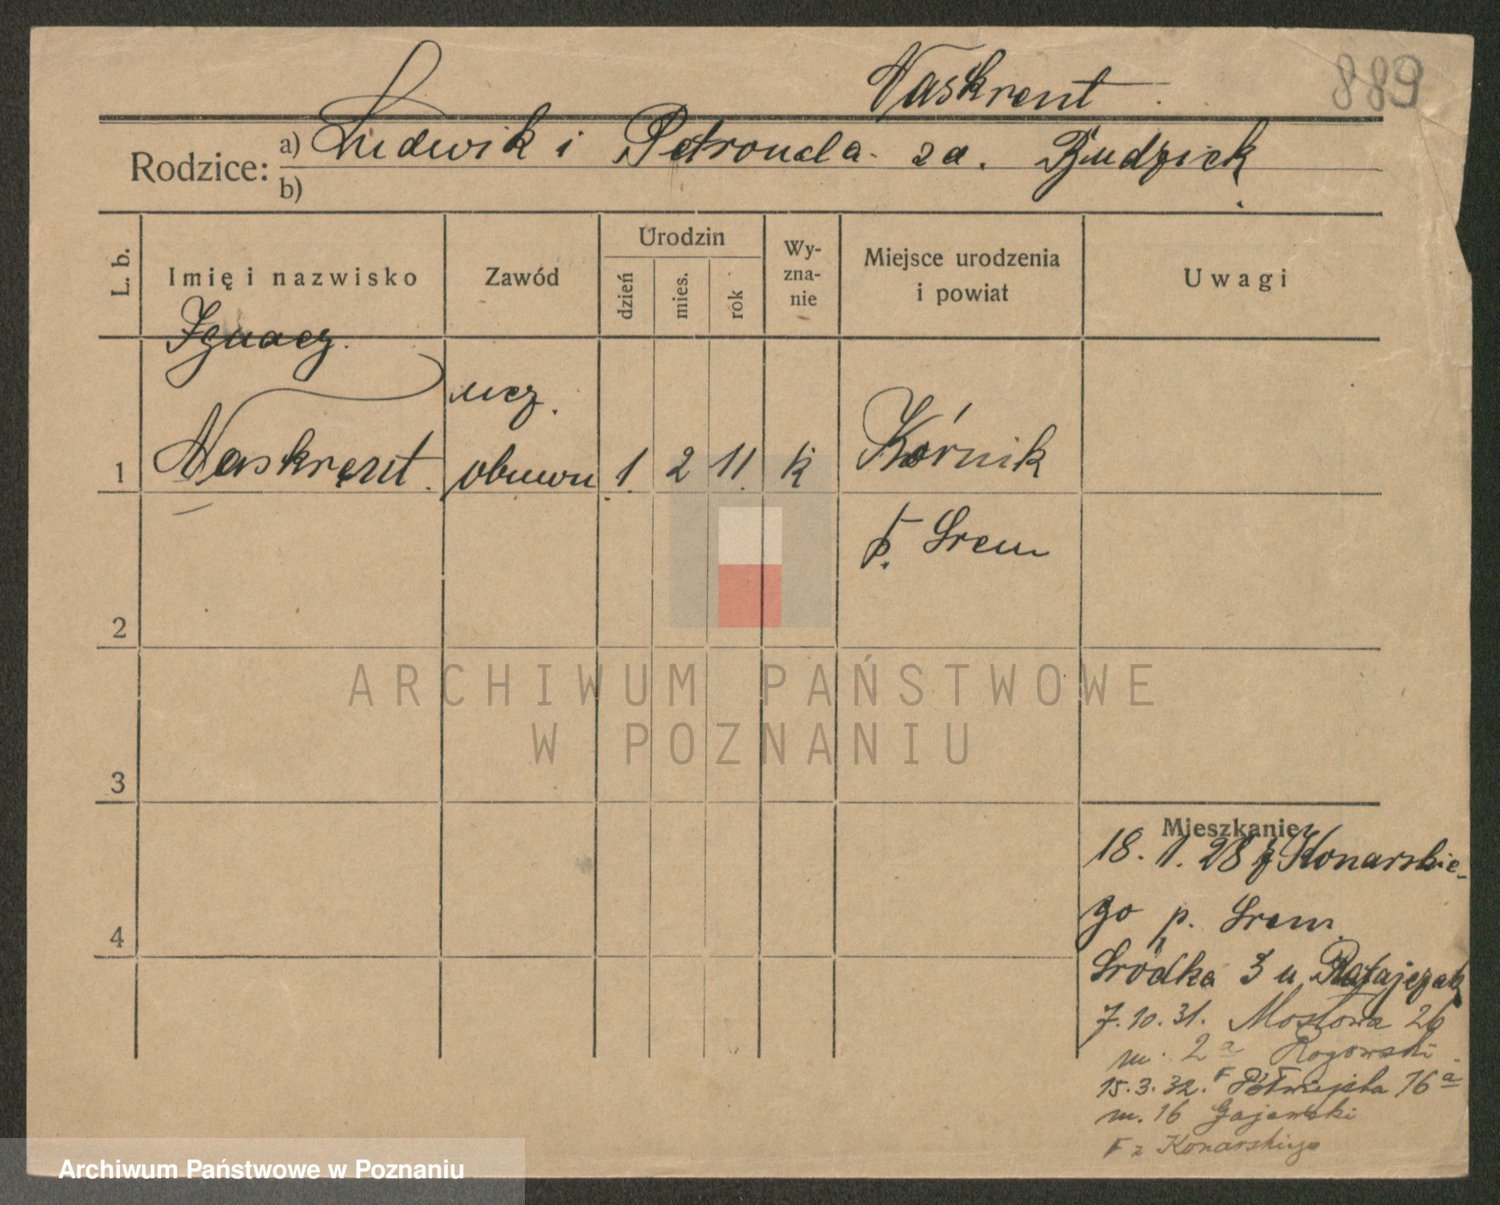 Naskrent
889
Rodzice: a) Ludwik i Petronela za. Budzick
b)
L. b.
Imię i nazwisko
Zawód
Urodzin
dzień
mies.
rok
Wy-
zna-
nie
Miejsce urodzenia
i powiat
Uwagi
Ignacy
ucz.
1 Naskrent. obuwn 1. 2 11. k Kórnik
p. Śrem
2
3
4
Mieszkanie
18. 1. 28 z Konarskie-
go p. Śrem.
Śródka 3 u Ratajczak
7.10.31. Mostowa 26
m. 2a Rogowski
15.3.32. F Półwiejska 16a
m. 16 Gajewski
F z Konarskiego
ARCHIWUM PAŃSTWOWE
W POZNANIU
Archiwum Państwowe w Poznaniu